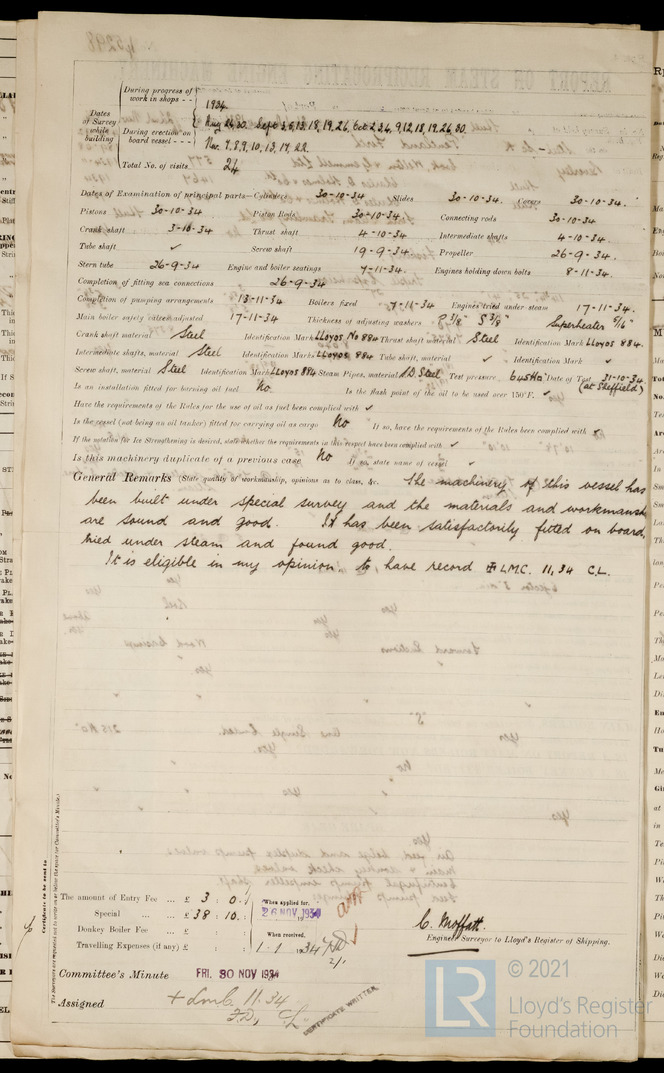 During progress of work in shops - -
1934
Aug 24, 30. Sept 3, 5, 13, 18, 19, 26, Oct 2, 3, 4, 9, 12, 18, 19, 26, 30.
Dates of Survey while building
During erection on board vessel - - -
Nov. 7, 8, 9, 10, 13, 17, 22.
Total No. of visits 24
Dates of Examination of principal parts—Cylinders 30-10-34 Slides 30-10-34. Covers 30-10-34.
Pistons 30-10-34 Piston Rods 30-10-34. Connecting rods 30-10-34
Crank shaft 3-10-34 Thrust shaft 4-10-34 Intermediate shafts 4-10-34.
Tube shaft ✓ Screw shaft 19-9-34 Propeller 26-9-34.
Stern tube 26-9-34 Engine and boiler seatings 7-11-34. Engines holding down bolts 8-11-34.
Completion of fitting sea connections 26-9-34
Completion of pumping arrangements 13-11-34 Boilers fixed 7-11-34 Engines tried under steam 17-11-34.
Main boiler safety valves adjusted 17-11-34 Thickness of adjusting washers P 3/8" S 3/8" Superheater 5/16"
Crank shaft material Steel Identification Mark LLOYDS No 884 Thrust shaft material Steel Identification Mark LLOYDS 884.
Intermediate shafts, material Steel Identification Marks LLOYDS 884 Tube shaft, material ✓ Identification Mark ✓
Screw shaft, material Steel Identification Mark LLOYDS 884 Steam Pipes, material S.D. Steel Test pressure 645 lbs Date of Test 31-10-34
(at Sheffield)
Is an installation fitted for burning oil fuel No Is the flash point of the oil to be used over 150°F. ✓
Have the requirements of the Rules for the use of oil as fuel been complied with ✓
Is the vessel (not being an oil tanker) fitted for carrying oil as cargo No If so, have the requirements of the Rules been complied with ✓
If the notation for Ice Strengthening is desired, state whether the requirements in this respect have been complied with ✓
Is this machinery duplicate of a previous case No If so, state name of vessel ✓
General Remarks (State quality of workmanship, opinions as to class, &c. The machinery of this vessel has
been built under special survey and the materials and workmanship
are sound and good. It has been satisfactorily fitted on board,
tried under steam and found good.
It is eligible in my opinion to have record ✠ LMC. 11,34 C.L.
Certificate to be sent to
The amount of Entry Fee ... £ 3 : 0 :
Special ... ... £ 38 : 10 :
Donkey Boiler Fee ... £ : :
Travelling Expenses (if any) £ : :
When applied for,
26 NOV 1934
When received,
1.1.1934
C. Moffatt.
Engineer Surveyor to Lloyd's Register of Shipping.
Committee's Minute FRI. 30 NOV 1934
Assigned + Lmc 11.34
F.D., CL
CERTIFICATE WRITTEN
LR
© 2021
Lloyd's Register
Foundation